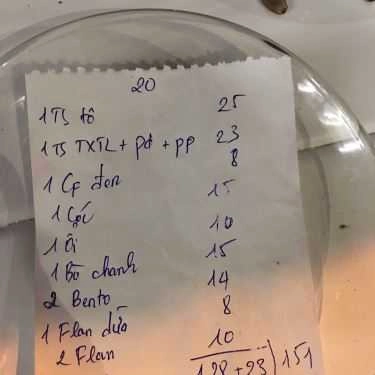 20
1 TS tô 25
1 TS TXTL + pđ + pp 23
8
1 Cf đen 15
1 Cốc 10
1 Ổi 15
1 Bò chanh 14
2 Bento 8
1 Flan dừa 10
2 Flan 128 + 23 ) 151